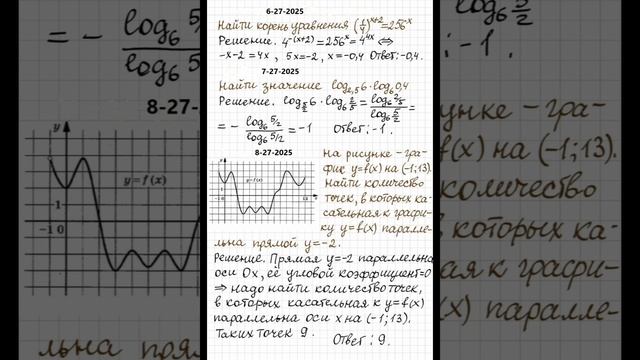 6-27-2025
Найти корень уравнения (1/4)^(x+2)=256^-x
Решение. 4^-(x+2)=256^x=4^4x ⇔
-x-2=4x, 5x=-2, x=-0,4 Ответ:-0,4.
7-27-2025
Найти значение log₂,₅6·log₆0,4
Решение. log_5/2 6·log₆ 2/5 = log₆ 2/5 / log₆ 5/2 =
= - log₆ 5/2 / log₆ 5/2 = -1 Ответ: -1.
8-27-2025
y
y=f(x)
1
-1 0
На рисунке - гра-
фик y=f(x) на (-1;13).
Найти количество
точек, в которых ка-
сательная к графи-
ку y=f(x) паралле-
льна прямой y=-2.
Решение. Прямая y=-2 параллельна
оси Ox, её угловой коэффициент=0
⇒ надо найти количество точек,
в которых касательная к y=f(x)
параллельна оси x на (-1;13).
Таких точек 9. Ответ: 9.
= - log₆ 5/
log₆ 5/
8-27-
y
y=f(x)
1
-1 0
льна прям
: -1.
рисунке - гра-
f(x) на (-1;13).
количество
в которых ка-
ая к графи-
f(x) паралле-